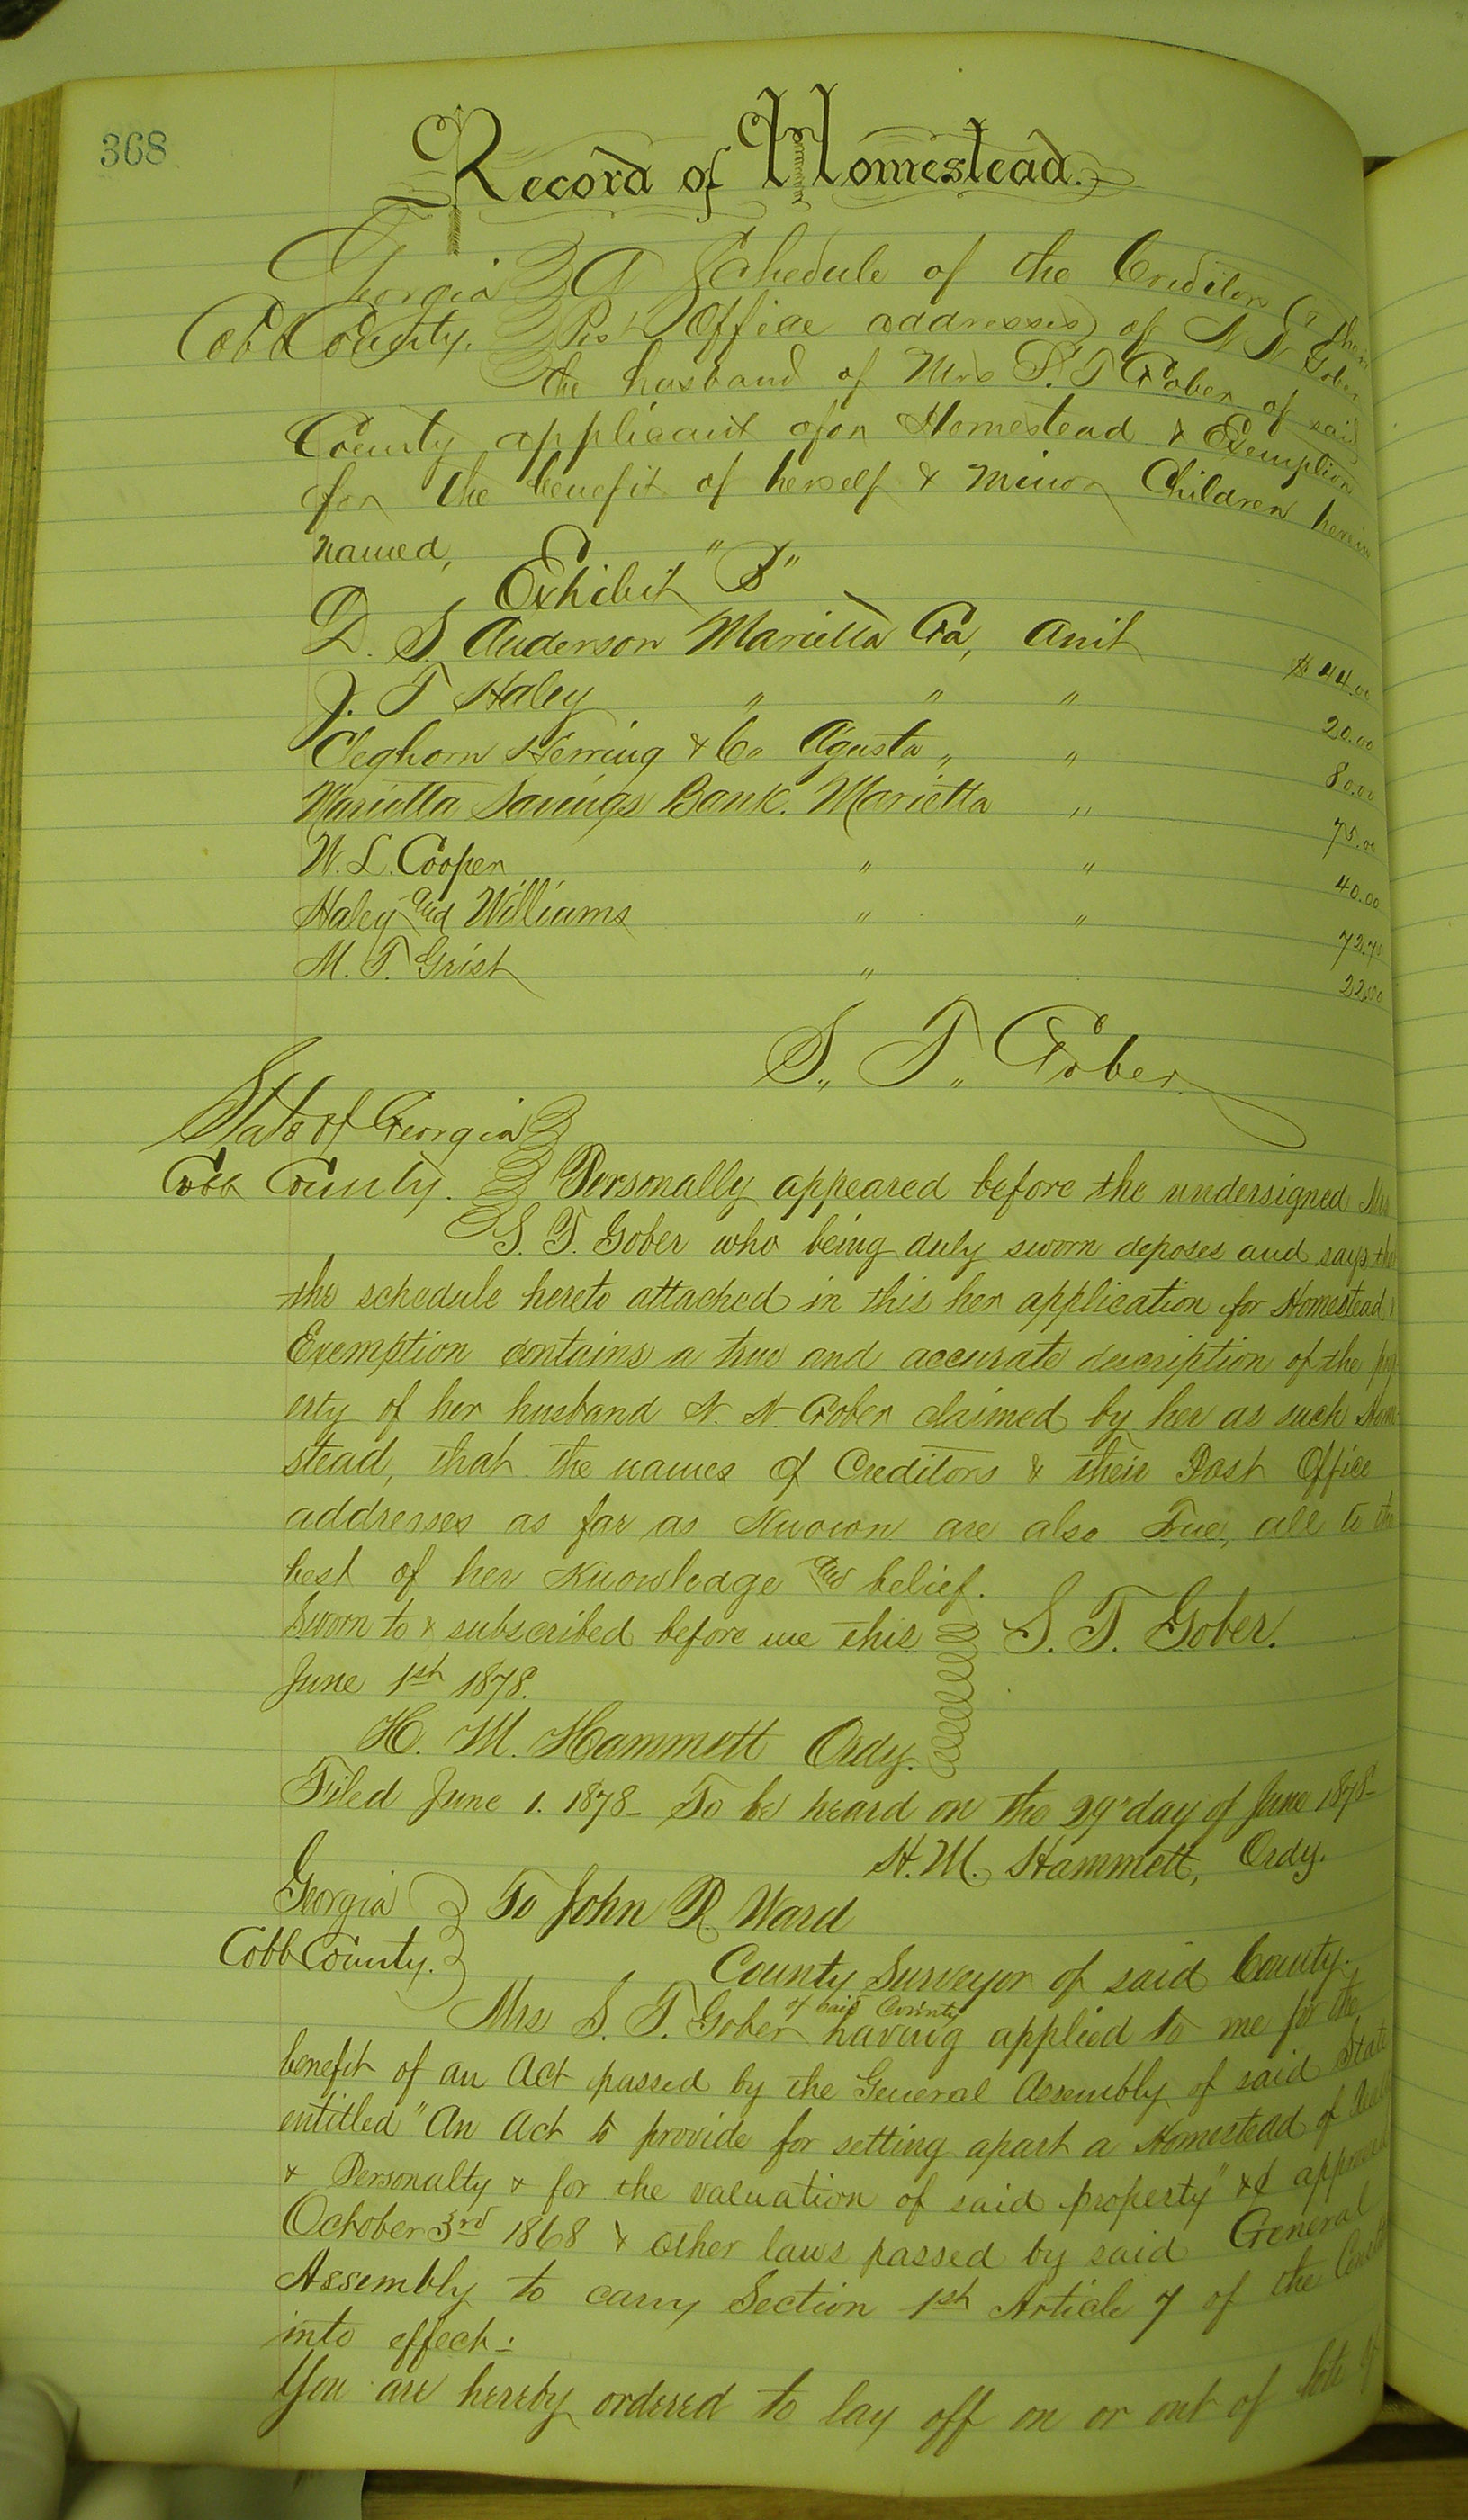 368
Record of Homestead.
Georgia A Schedule of the Creditors (& their
Cobb County. Post Office addresses) of N. N. Gober
the husband of Mrs S. T. Gober of said
County applicant for Homestead & Exemption
for the benefit of herself & Minor Children herein
named,
Exhibit "B"
D. S. Anderson Marietta Ga, Amt $44.00
J. T Haley " " " 20.00
Cleghorn Herring & Co Agusta " " 80.00
Marietta Savings Bank. Marietta " 75.00
W. L. Cooper " " 40.00
Haley and Williams " " 72.70
M. T. Grist " 22.00
S. T. Gober
State of Georgia
Cobb County. Personally appeared before the undersigned Mrs
S. T. Gober who being duly sworn deposes and says that
the schedule hereto attached in this her application for Homestead &
Exemption contains a true and accurate description of the prop
erty of her husband N. N. Gober claimed by her as such Home
stead, that the names of Creditors & their Post Office
addresses as far as Known are also True, all to the
best of her Knowledge and belief.
Sworn to & subscribed before me this S. T. Gober.
June 1st 1878.
H. M. Hammett Ordy.
Filed June 1. 1878- To be heard on the 29" day of June 1878-
H. M. Hammett, Ordy.
Georgia To John R. Ward
Cobb County. County Surveyor of said County.
Mrs S. T. Gober of said County having applied to me for the
benefit of an Act passed by the General Assembly of said State
entitled "An Act to provide for setting apart a Homestead of Realty
& Personalty & for the valuation of said property" &c approved
October 3rd 1868 & other laws passed by said General
Assembly to carry Section 1st Article 7 of the
into effect:
You are hereby ordered to lay off on or out of lots